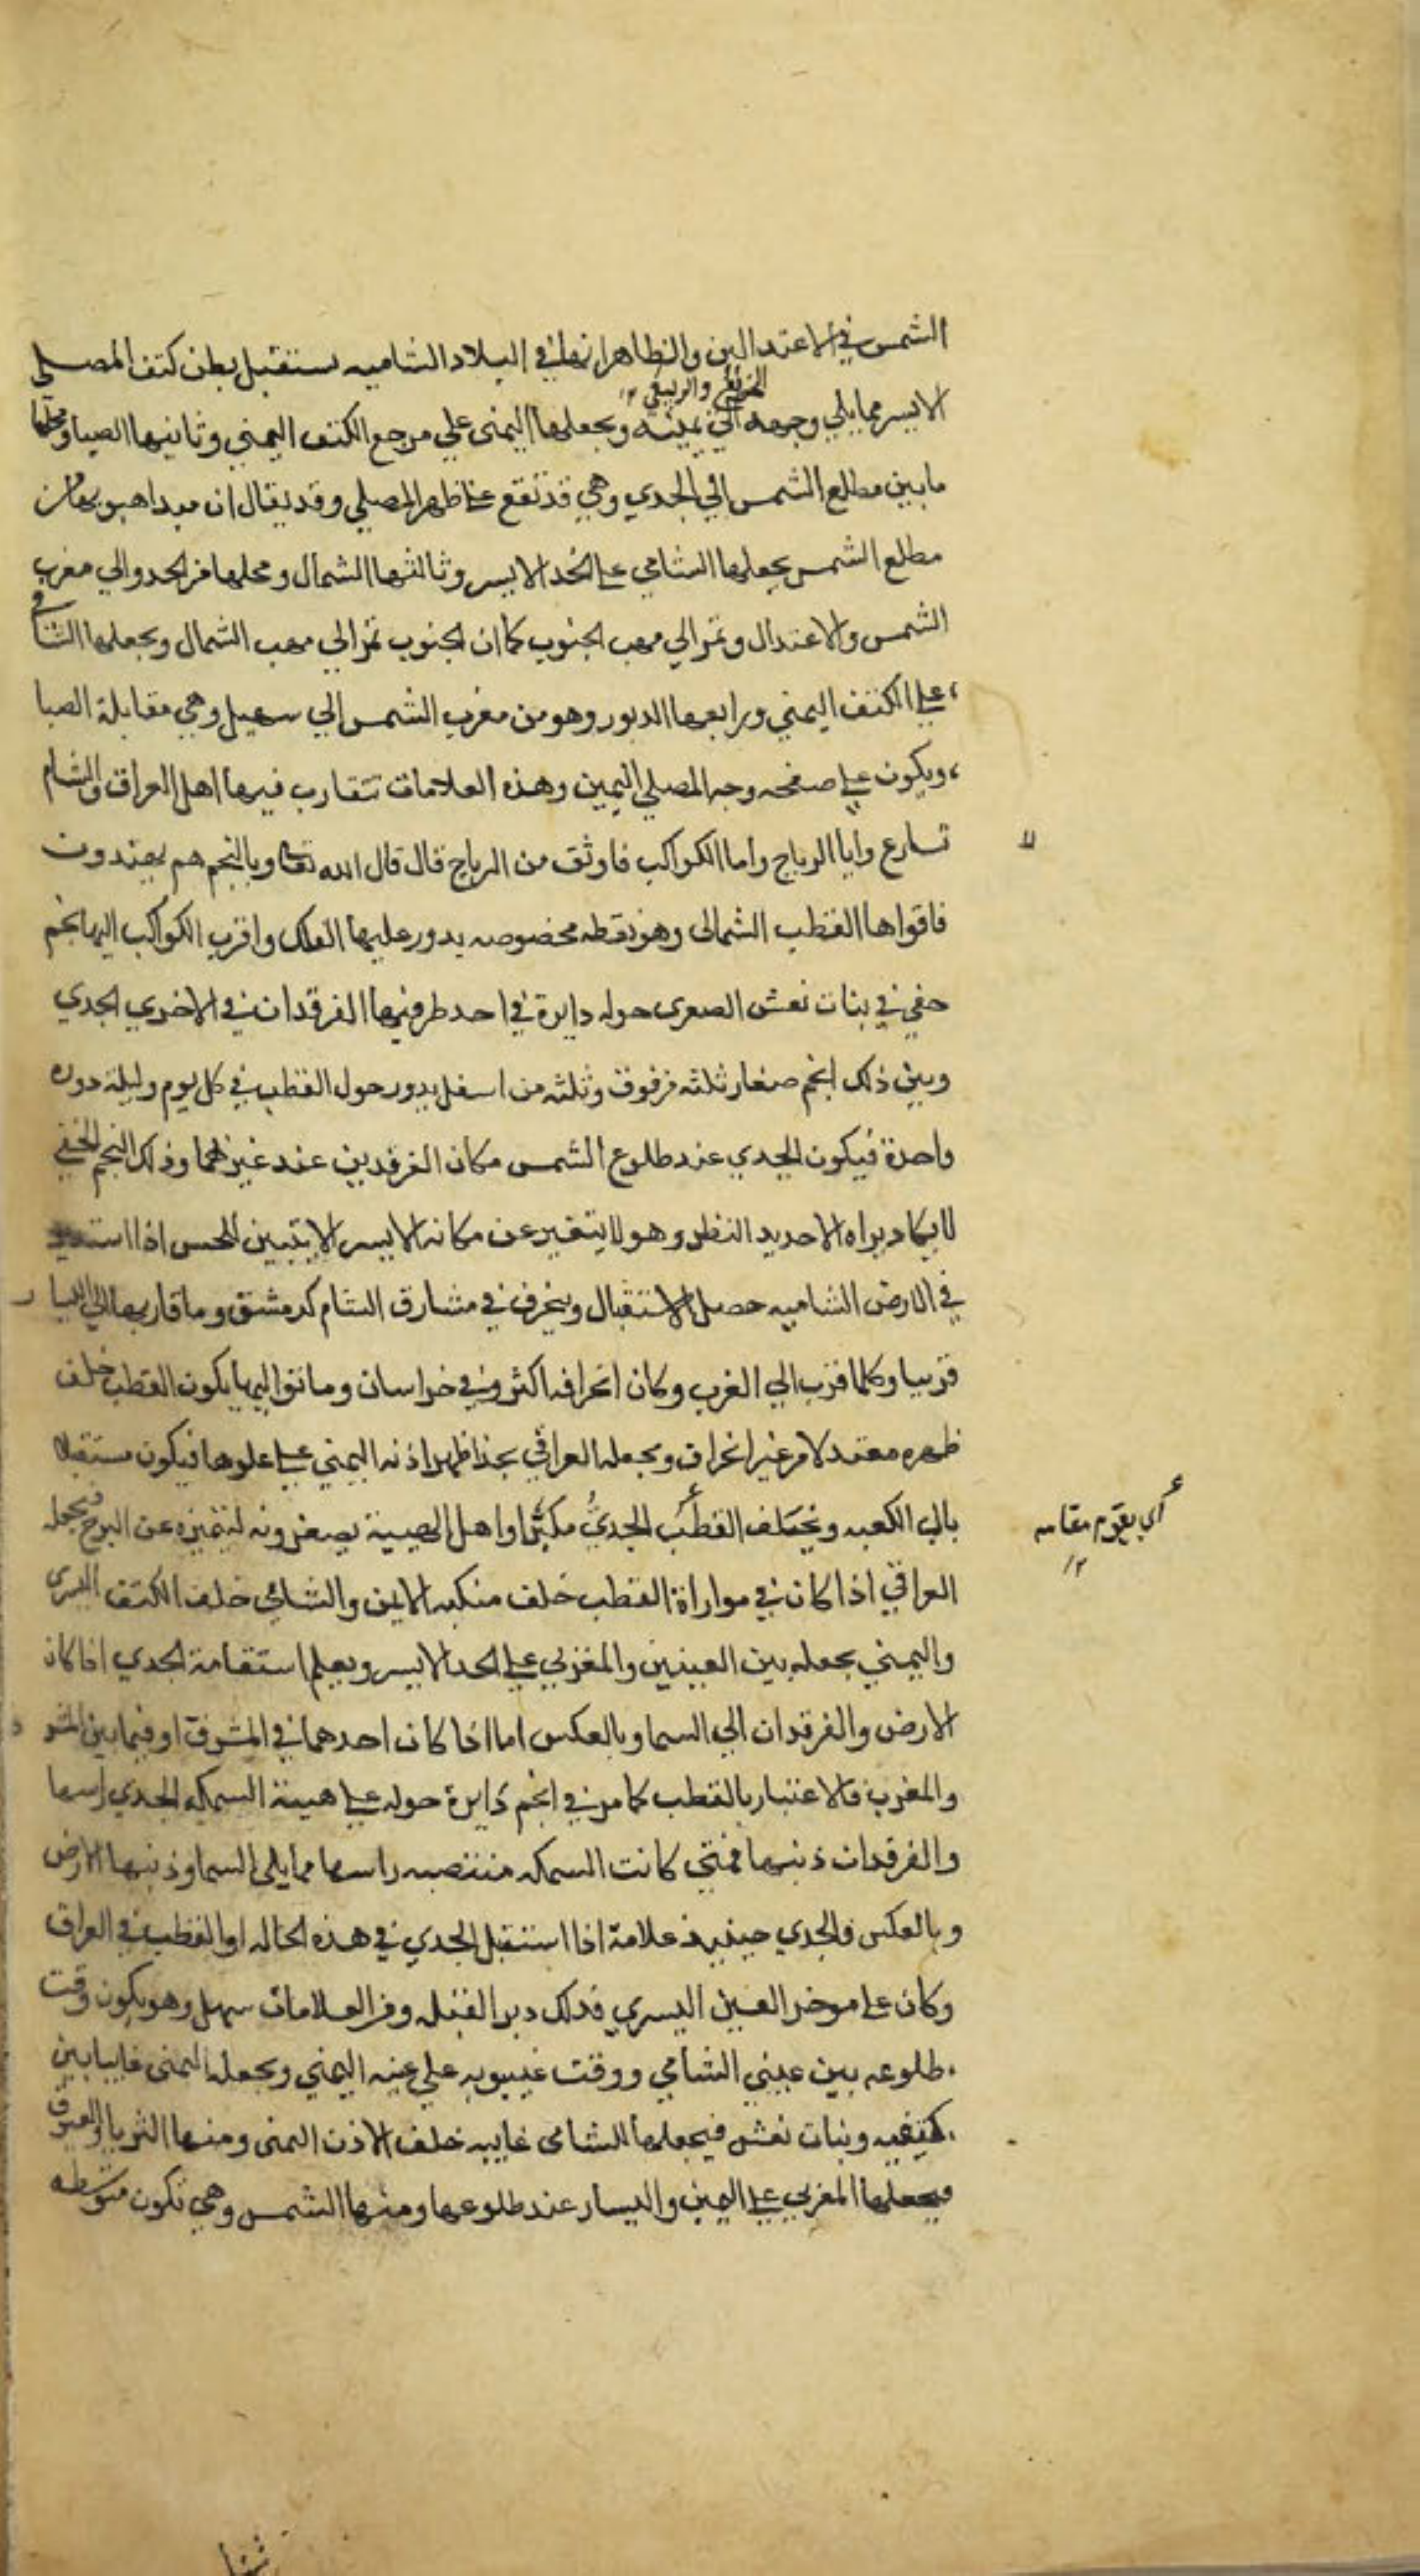 الشمس في الاعتدالين والظاهر انها في البلاد الشاميه يستقبل بطن كتف المصلي
الخريفي والربيعي ١٢
الايسر مما يلي وجهه الي يمينه ويجعلها اليمنى علي مرجع الكتف اليمني وثانيها الصبا ومحلها
ما بين مطلع الشمس الي الجدي وهي قد تقع علي ظهر المصلي وقد يقال ان مبدا هبوبها من
مطلع الشمس يجعلها الشامي علي الخد الايسر وثالثها الشمال ومحلها من الجدو الي مغرب
الشمس والاعتدال وتمر الي مهب الجنوب كما ان الجنوب تمر الي مهب الشمال ويجعلها الشامي
علي الكتف اليمني ورابعها الدبور وهو من مغرب الشمس الي سهيل وهي مقابلة الصبا
ويكون علي صفحه وجه المصلي اليمين وهذه العلامات تتقارب فيها اهل العراق والشام
تسارع وايا الرياح واما الكواكب فاوثق من الرياح قال قال الله تعا وبالنجم هم يهتدون
فاقواها القطب الشمالى وهو نقطه مخصوصه يدور عليها الفلك واقرب الكواكب اليها نجم
خفي في بنات نعش الصغرى حوله دايرة في احد طرفيها الفرقدان في الاخري الجدي
وبين ذلك انجم صغار ثلثه من فوق وثلثه من اسفل يدور حول القطب في كل يوم وليلة دوره
واحدة فيكون الجدي عند طلوع الشمس مكان الفرقدين عند غيرهما وذلك النجم الخفي
لا يكاد يراه الا حديد النظر وهو لا يتغير عن مكانه الا يسير لا يتبين للحس اذا
في الارض الشاميه حصل الاستقبال وينحرف في مشارق الشام كدمشق وما قاربها الي اليسار
قريبا وكلما قرب الي الغرب وكان انحرافه اكثر وفي خراسان وما نوا اليها يكون القطب خلف
ظهره معتدلا من غير انحراف ويجعله العراقي بحذا ظهر اذنه اليمني علي علوها فيكون مستقبلا
باب الكعبه ويخلف القطب الجدي مكبرا واهل الهيية يصغرونه لتميزه عن البرج ويجعله
أي يقوم مقامه
١٢
العراقي اذا كان في موازاة القطب خلف منكبه الايمن والشامي خلف الكتف اليسرى
واليمني يجعله بين العينين والمغربي علي الخد الايسر ويعلم استقامة الجدي اذا كان
الارض والفرقدان الي السما وبالعكس اما اذا كان احدهما في المشرق او فيما بين المشرق
والمغرب فالاعتبار بالقطب كما مر في انجم دايرة حوله علي هيئة السمكه الجدي راسها
والفرقدان ذنبها فمتي كانت السمكه منتصبه راسها مما يلى السما وذنبها الارض
وبالعكس فالجدي حينيذ علامة اذا استقبل الجدي في هذه الحاله او القطب في العراق
وكان علي موخر العين اليسري فذلك دبر القبله ومن العلامات سهيل وهو يكون وقت
طلوعه بين عيني الشامي ووقت غيبوبه علي عينه اليمني ويجعله اليمنى غايبا بين
كتفيه وبنات نعش فيجعلها الشامى غايبه خلف الاذن اليمنى ومنها الثريا والعيوق
فيجعلها المغربي علي اليمين واليسار عند طلوعها ومنها الشمس وهي تكون متوسطه